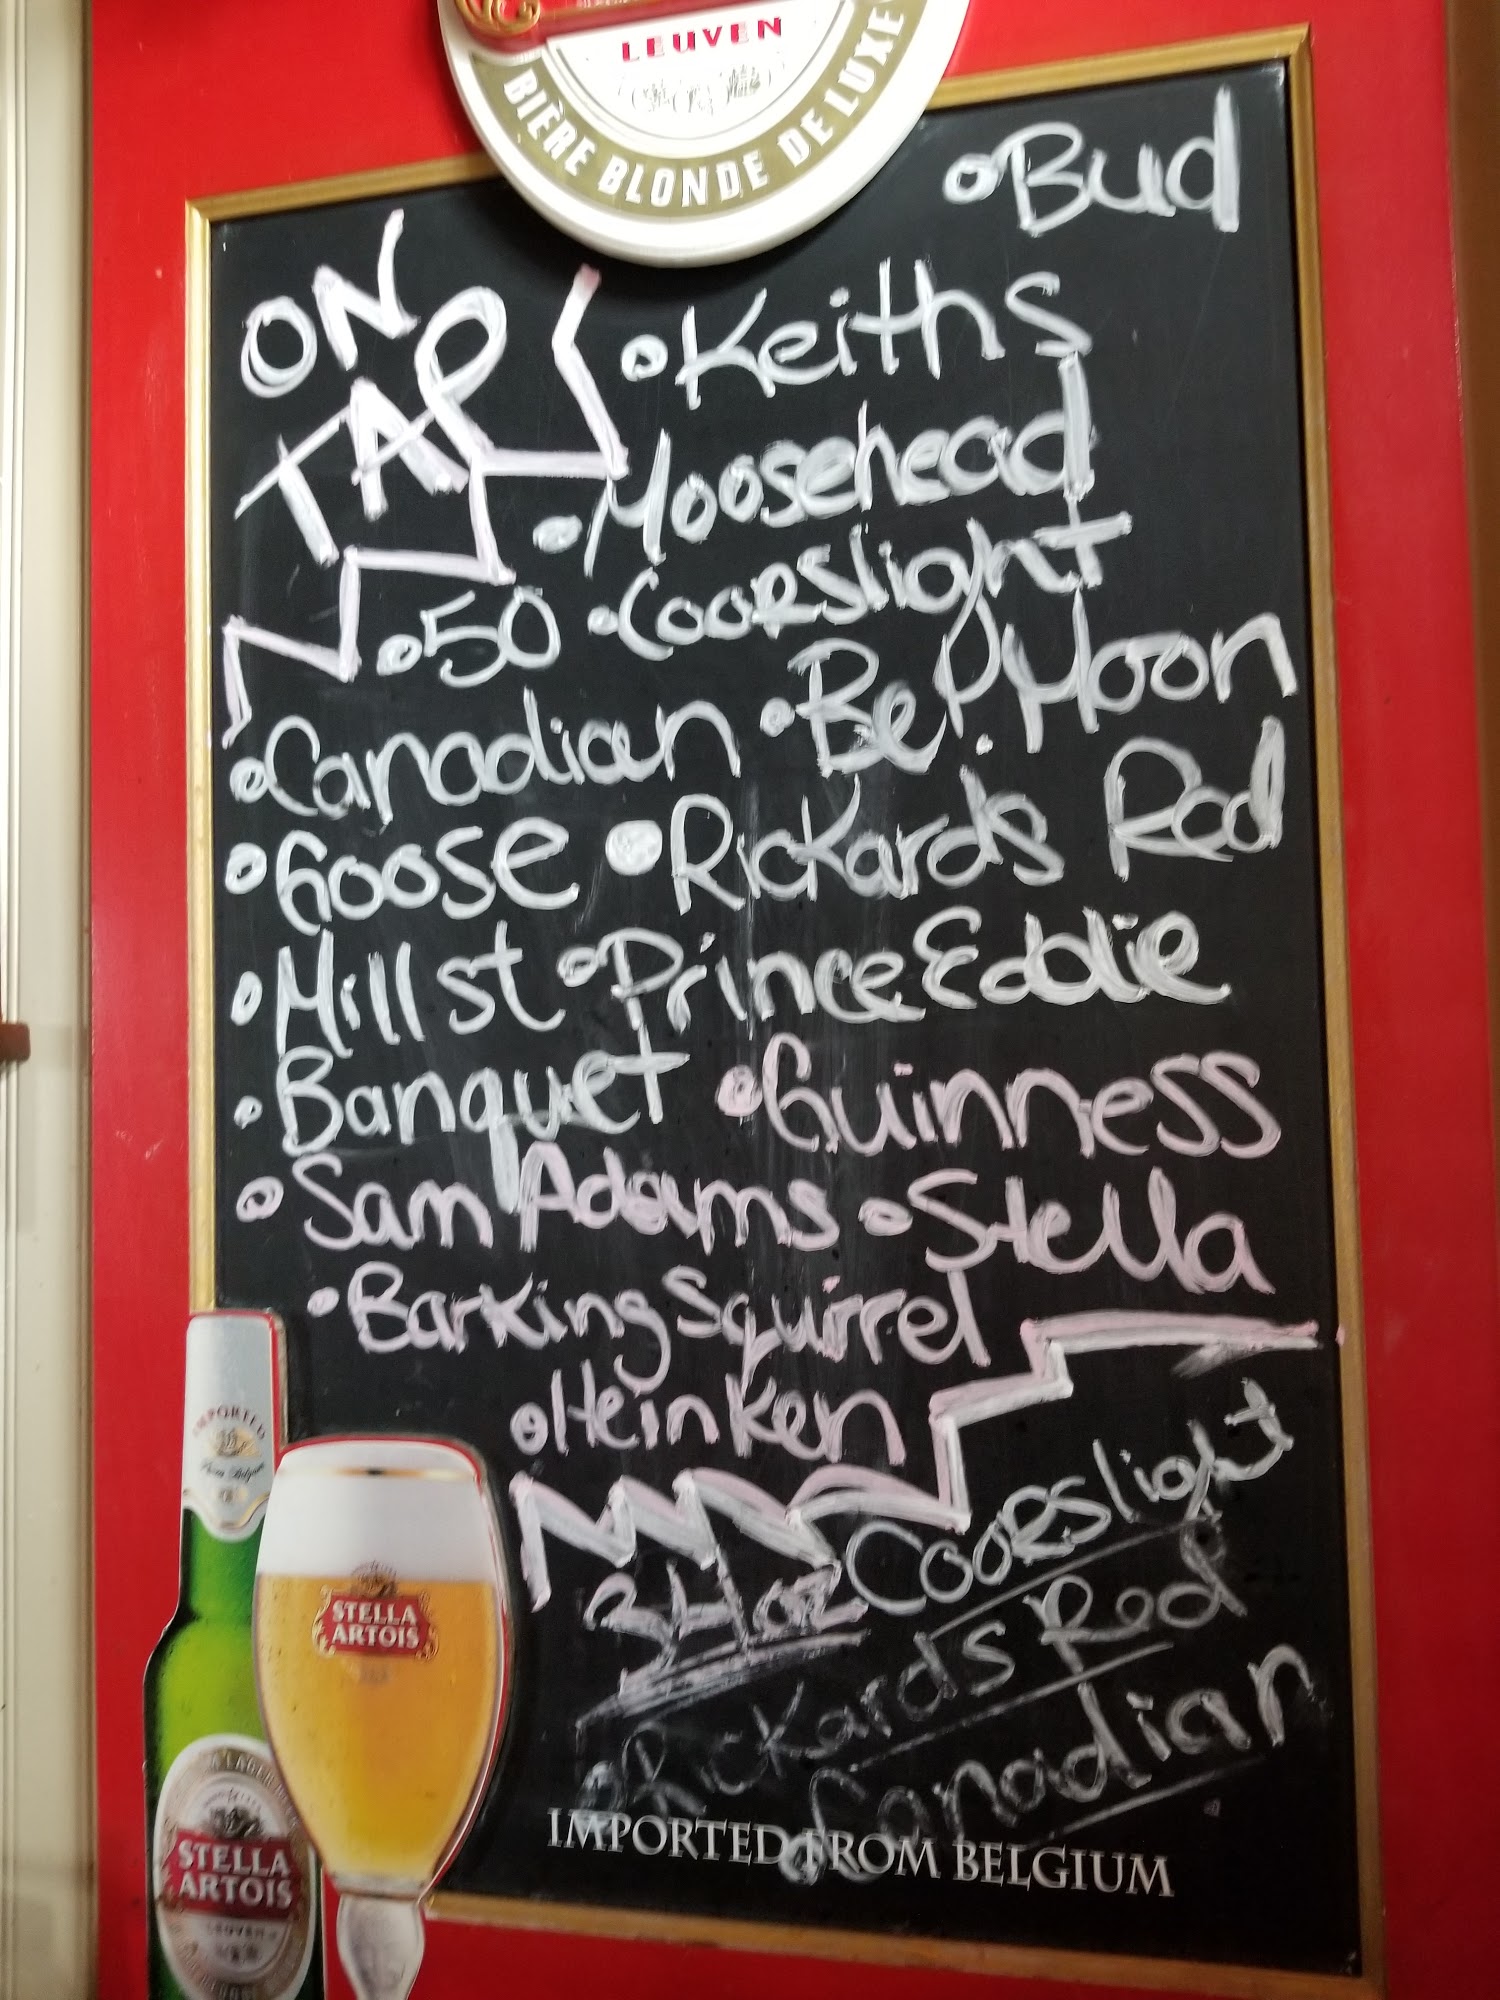 LEUVEN
BIÈRE BLONDE DE LUXE
•Bud
ON
TAP
•Keiths
•Moosehead
•50 •Coorslight
•Canadian •Bel. Moon
•Goose •Rickards Red
•Mill st •Prince Eddie
•Banquet •Guinness
•Sam Adams •Stella
•Barking Squirrel
•Heinken
34oz Coorslight
•Rickards Red
•Canadian
IMPORTED FROM BELGIUM
IMPORTED
STELLA
ARTOIS
STELLA
ARTOIS
LEUVEN